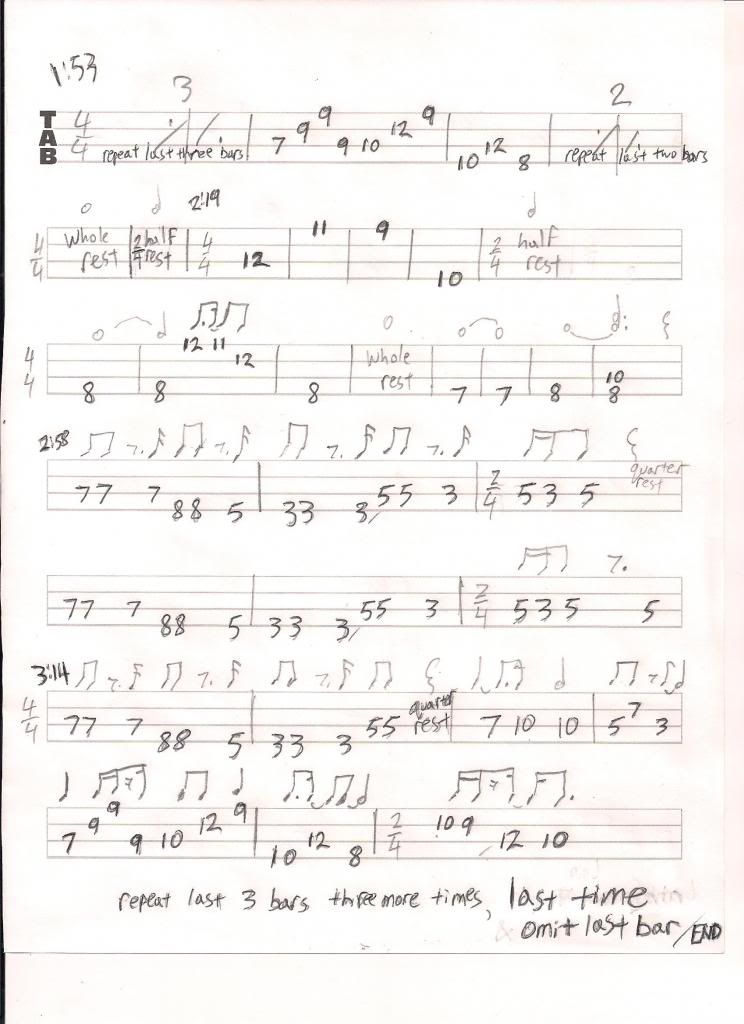 1:53
3 2
TAB 4/4 repeat last three bars 7 9 9 9 10 12 9 10 12 8 repeat last two bars
2:19
4/4 whole rest 2/4 half rest 4/4 12 11 9 10 2/4 half rest
12 11
12
4/4 8 8 8 whole rest 7 7 8 10 8
2:58
77 7 88 5 33 3/55 3 2/4 5 3 5 quarter rest
77 7 88 5 33 3/55 3 2/4 5 3 5 5
3:14
4/4 77 7 88 5 33 3 55 quarter rest 7 10 10 5 7 3
7 9 9 9 10 12 9 10 12 8 2/4 10 9 12 10
repeat last 3 bars three more times, last time
omit last bar/END